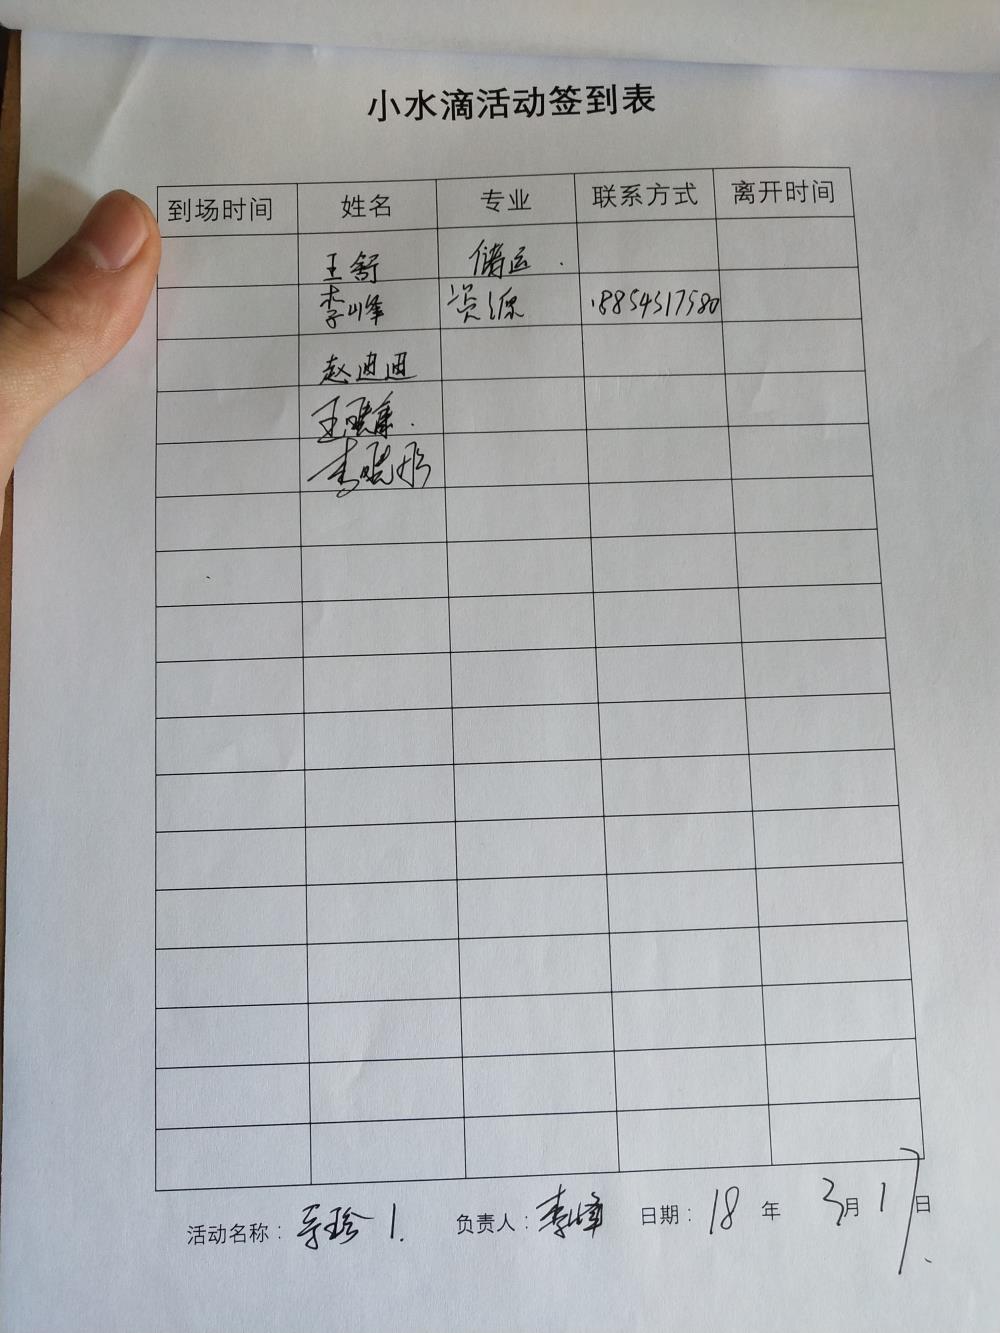 小水滴活动签到表
到场时间 姓名 专业 联系方式 离开时间
王舒 储运
李峰 资源 18854517580
赵迪迪
王
李晓彤
活动名称： 1. 负责人：李峰 日期：18 年 3月 17日